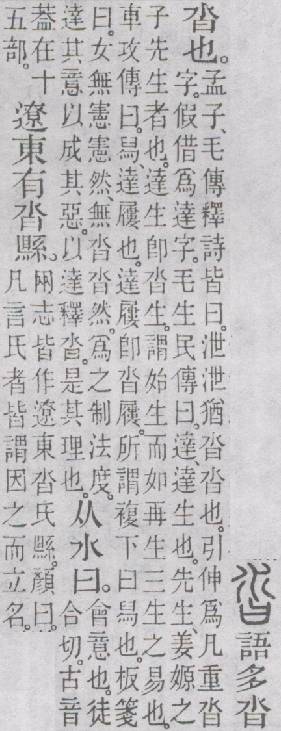 沓語多沓
沓也。
孟子、毛傳釋詩皆曰。泄泄猶沓沓也。引伸爲凡重沓
字。假借爲達字。毛生民傳曰。達、達生也。先生、姜嫄之
子先生者也。達生卽沓生。謂始生而如再生三生之易也。
車攻傳曰。舄、達屨也。達屨卽沓屨。所謂複下曰舄也。板箋
曰。女無憲憲然、無沓沓然。爲之制法度。
達其意以成其惡。以達釋沓。是其理也。
从水曰。
會意也。徒
合切。古音
葢在十
五部。
遼東有沓縣。
兩志皆作遼東沓氏縣。顏曰。
凡言氏者皆謂因之而立名。